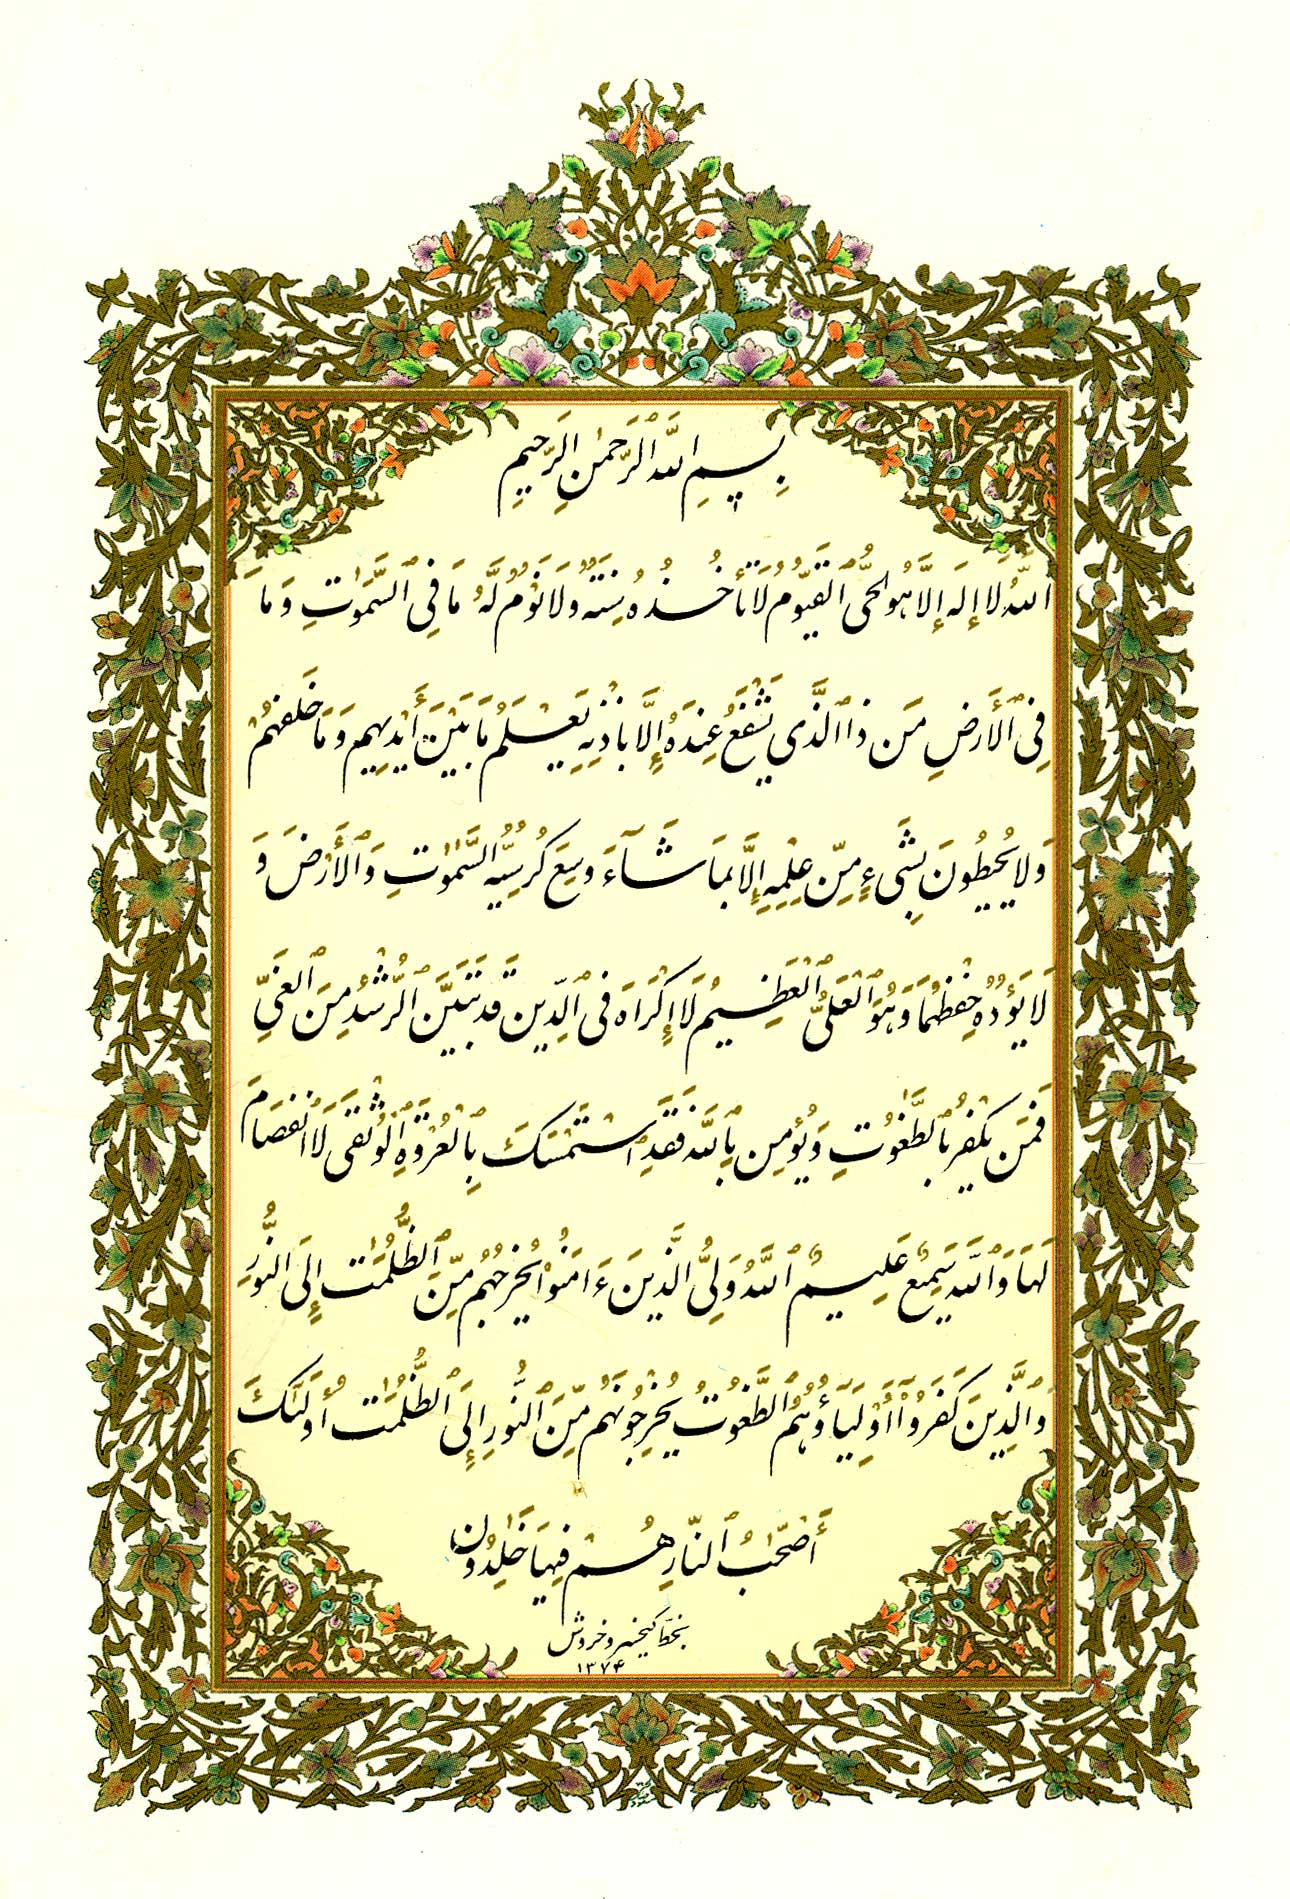 بِسْمِ ٱللَّهِ ٱلرَّحْمَٰنِ ٱلرَّحِيمِ
ٱللَّهُ لَا إِلَٰهَ إِلَّا هُوَ ٱلْحَيُّ ٱلْقَيُّومُ لَا تَأْخُذُهُ سِنَةٌ وَلَا نَوْمٌ لَّهُ مَا فِي ٱلسَّمَٰوَٰتِ وَمَا
فِي ٱلْأَرْضِ مَن ذَا ٱلَّذِي يَشْفَعُ عِندَهُ إِلَّا بِإِذْنِهِ يَعْلَمُ مَا بَيْنَ أَيْدِيهِمْ وَمَا خَلْفَهُمْ
وَلَا يُحِيطُونَ بِشَيْءٍ مِّنْ عِلْمِهِ إِلَّا بِمَا شَآءَ وَسِعَ كُرْسِيُّهُ ٱلسَّمَٰوَٰتِ وَٱلْأَرْضَ وَ
لَا يَؤُدُهُ حِفْظُهُمَا وَهُوَ ٱلْعَلِيُّ ٱلْعَظِيمُ لَا إِكْرَاهَ فِي ٱلدِّينِ قَد تَّبَيَّنَ ٱلرُّشْدُ مِنَ ٱلْغَيِّ
فَمَن يَكْفُرْ بِٱلطَّٰغُوتِ وَيُؤْمِن بِٱللَّهِ فَقَدِ ٱسْتَمْسَكَ بِٱلْعُرْوَةِ ٱلْوُثْقَىٰ لَا ٱنفِصَامَ
لَهَا وَٱللَّهُ سَمِيعٌ عَلِيمٌ ٱللَّهُ وَلِيُّ ٱلَّذِينَ ءَامَنُوا يُخْرِجُهُم مِّنَ ٱلظُّلُمَٰتِ إِلَى ٱلنُّورِ
وَٱلَّذِينَ كَفَرُوٓا أَوْلِيَآؤُهُمُ ٱلطَّٰغُوتُ يُخْرِجُونَهُم مِّنَ ٱلنُّورِ إِلَى ٱلظُّلُمَٰتِ أُولَٰئِكَ
أَصْحَٰبُ ٱلنَّارِ هُمْ فِيهَا خَٰلِدُونَ
بخط کیخسرو خروش
۱۳۷۴